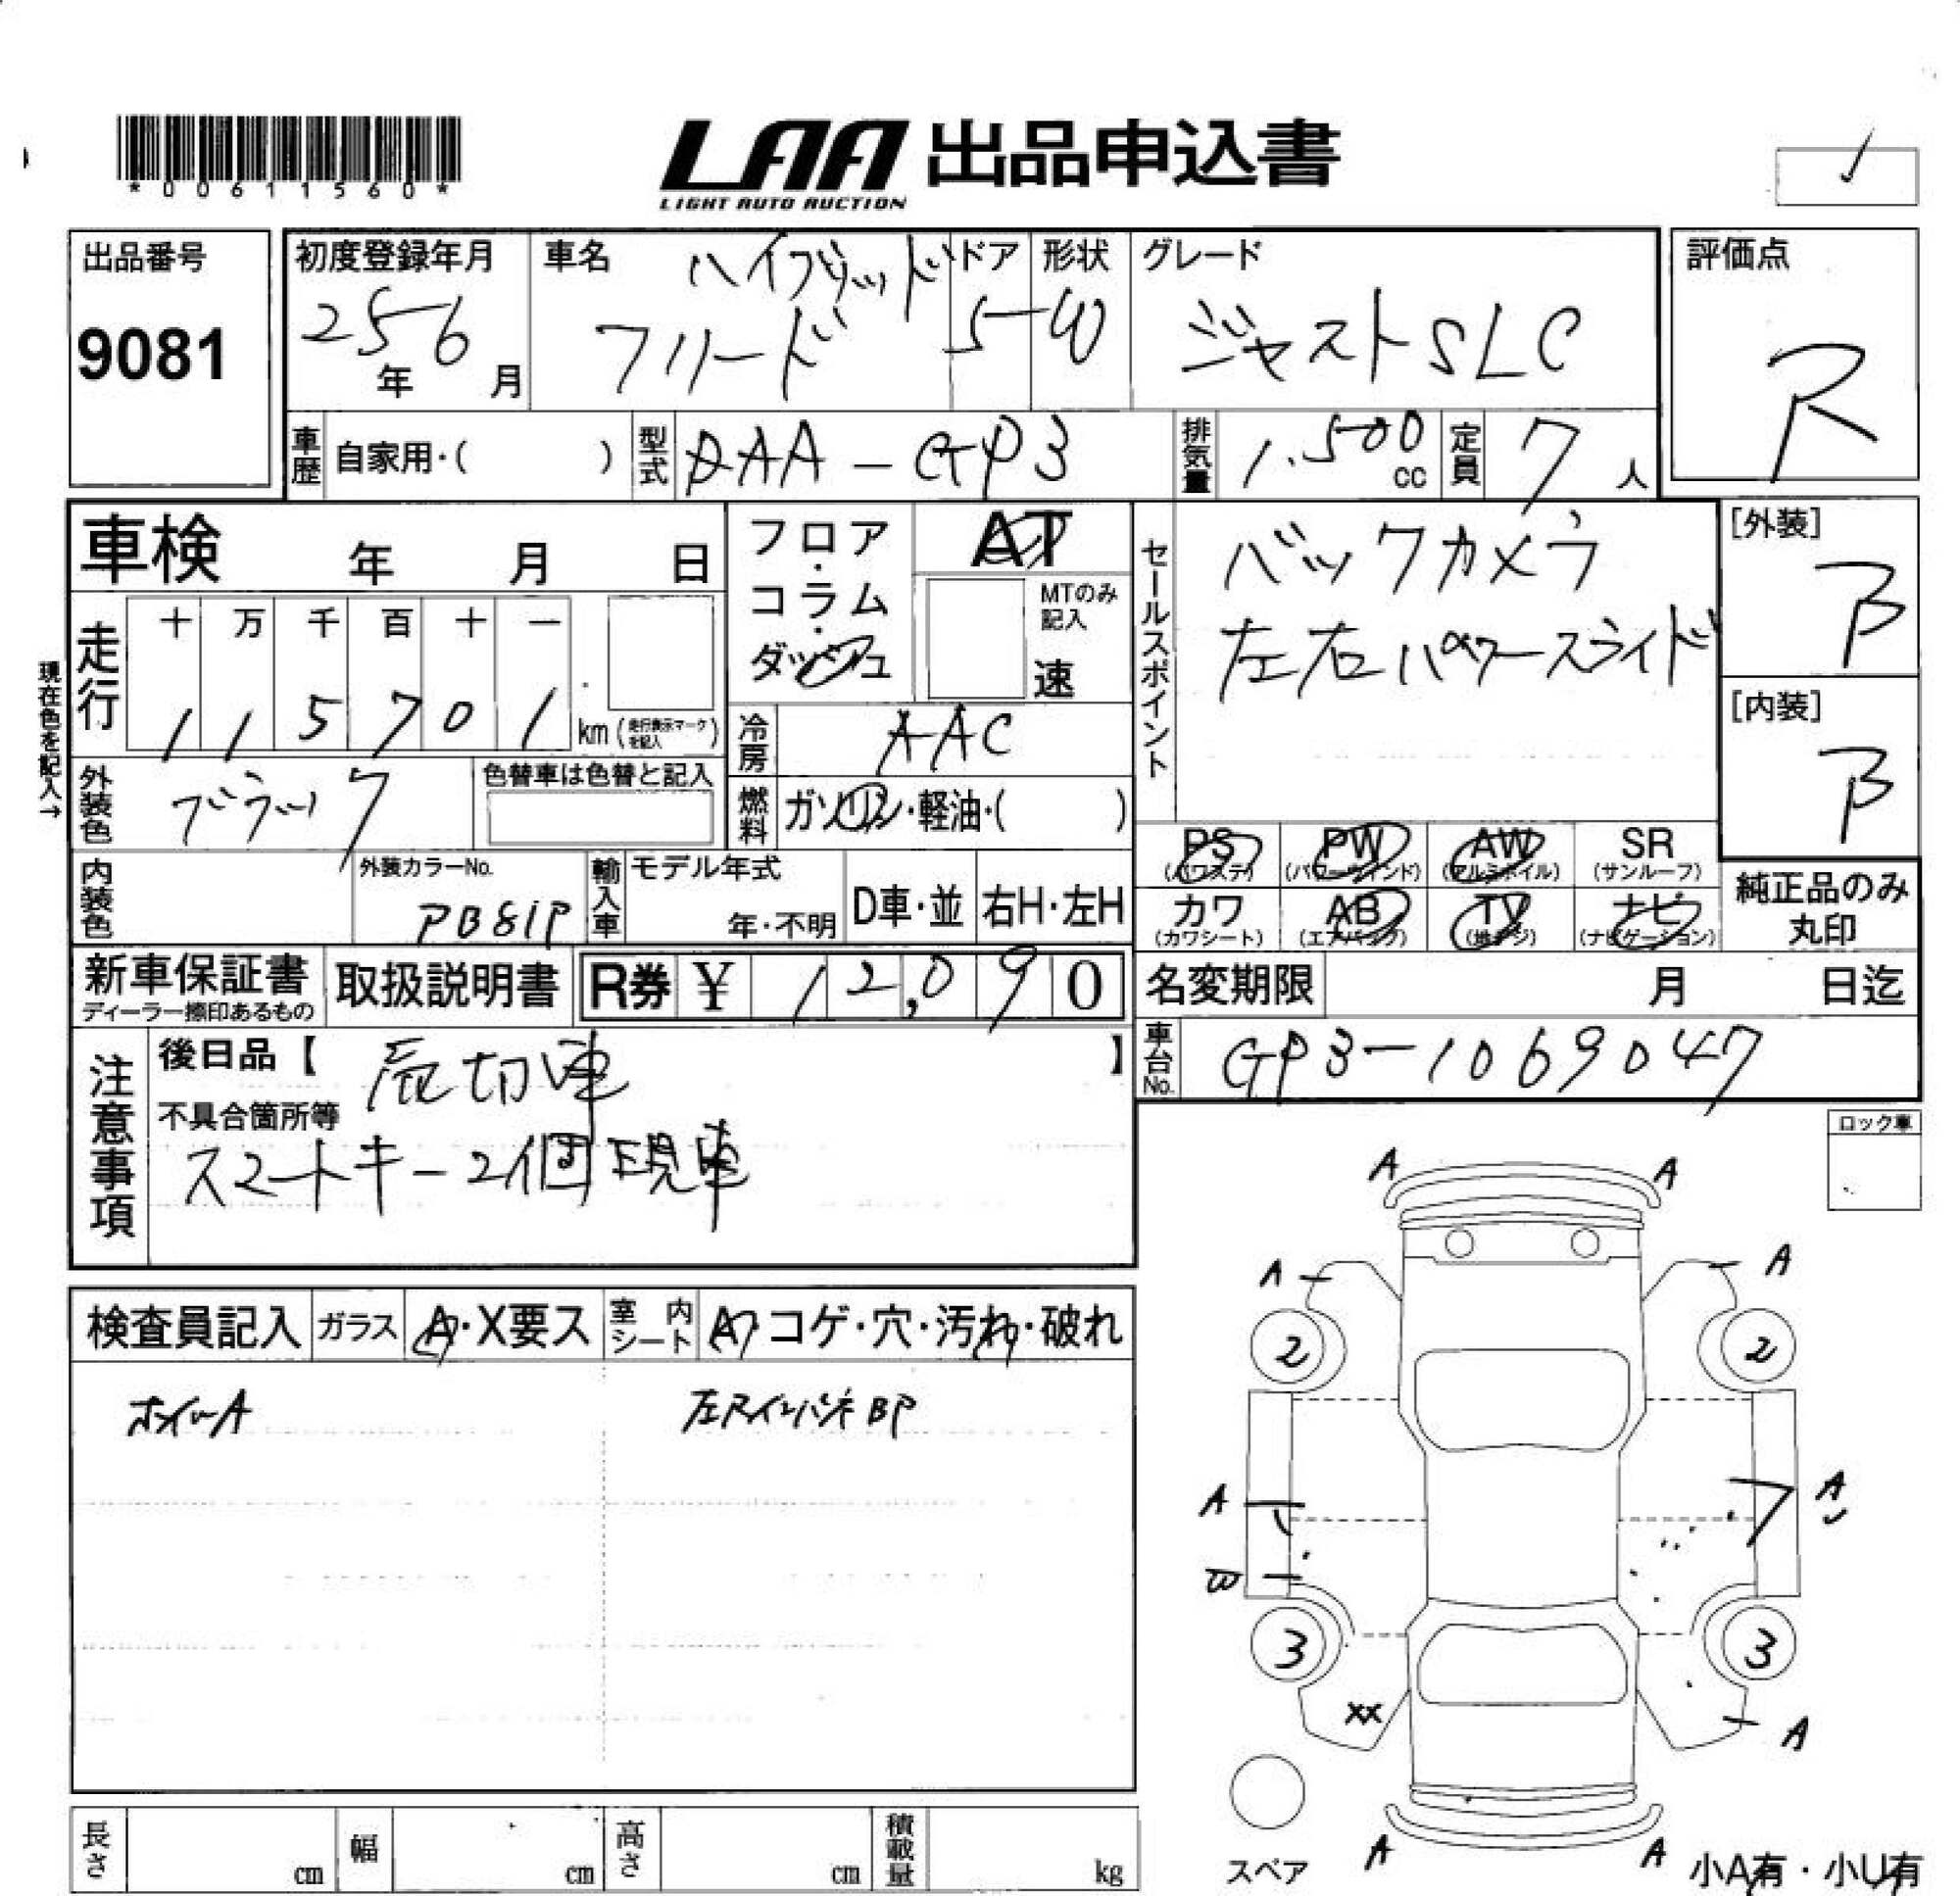 *00611560*
LAA 出品申込書
LIGHT AUTO AUCTION
出品番号
9081
初度登録年月
25年 6月
車名
ハイブリッド
フリード
ドア
5
形状
W
グレード
ジャストSLC
評価点
R
車歴 自家用・( )
型式 DAA-GP3
排気量 1.500 cc
定員 7 人
車検 年 月 日
フロア・コラム・ダッシュ
AT
MTのみ記入
速
セールスポイント
バックカメラ
左右パワースライド
[外装]
B
[内装]
B
現在色を記入→
走行
十 万 千 百 十 一
1 1 5 7 0 1 km (走行表示マークを記入)
冷房 AAC
外装色 ブラック
色替車は色替と記入
燃料 ガソリン・軽油・( )
PS (パワステ)
PW (パワーウインド)
AW (アルミホイル)
SR (サンルーフ)
カワ (カワシート)
AB (エアバック)
TV (地デジ)
ナビ (ナビゲーション)
純正品のみ丸印
内装色
外装カラーNo.
PB81P
輸入車
モデル年式
年・不明
D車・並
右H・左H
新車保証書
ディーラー捺印あるもの
取扱説明書
R券 ¥ 12,090
名変期限 月 日迄
車台No. GP3-1069047
注意事項
後日品【 】
売切車
不具合箇所等
スマートキー2個現車
ロック車
検査員記入
ガラス A・X要ス
室内シート A・コゲ・穴・汚れ・破れ
ホイールA
左RインパネBP
A A
A A
2 2
A A
W
3 3
XX A
A A
スペア
小A有・小U有
長さ cm
幅 cm
高さ cm
積載量 kg